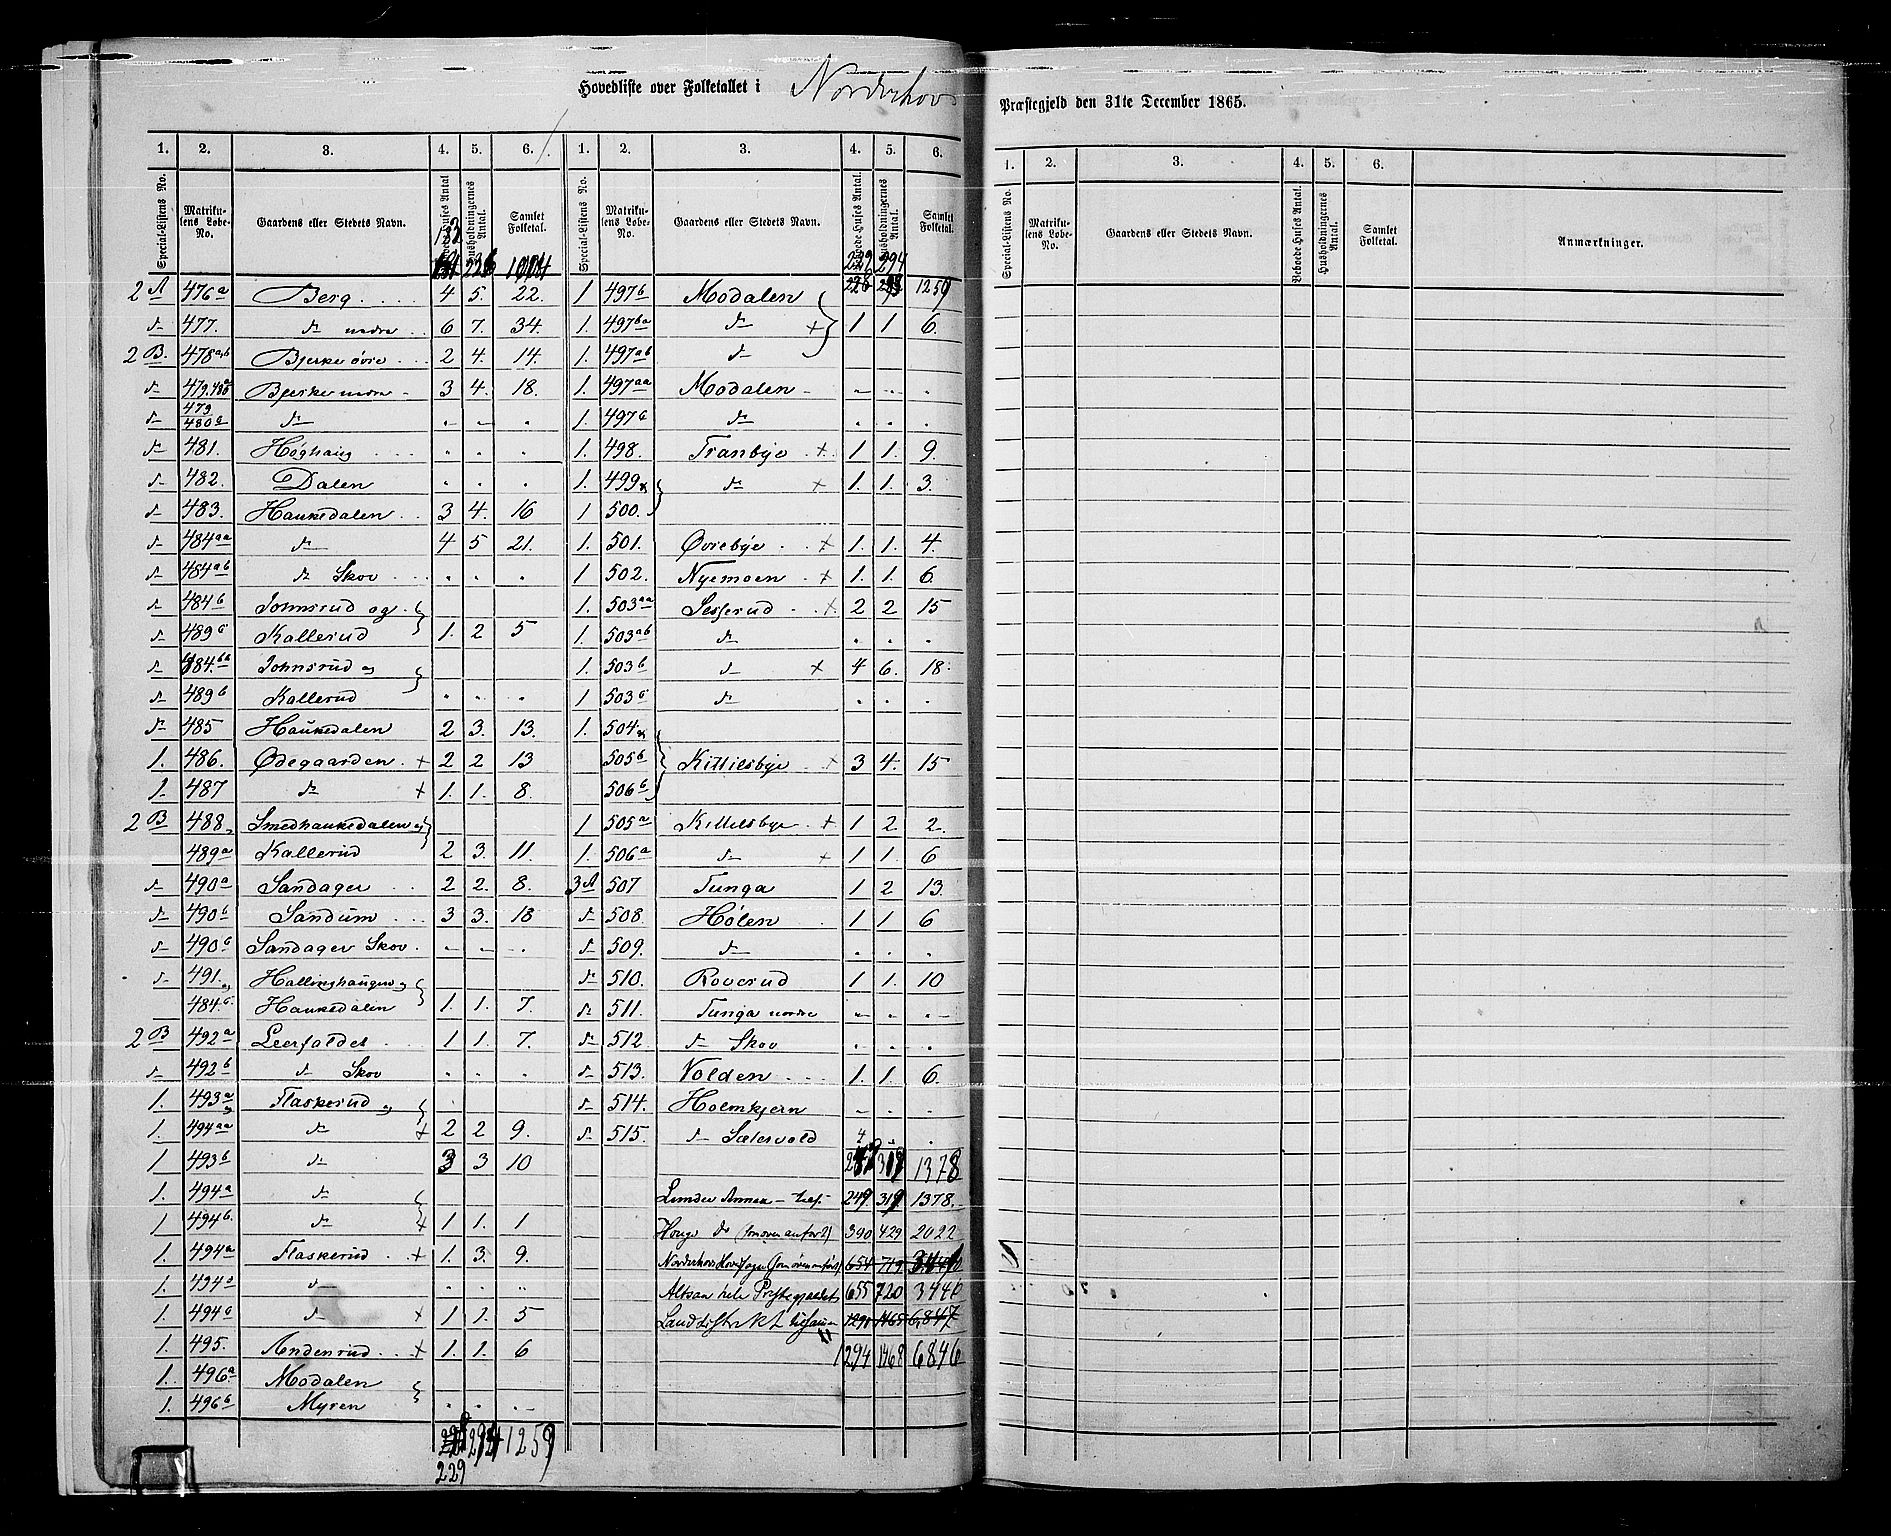 Hovedliste over Folketallet i Norderhovs
1. 2. 3. 4. 5. 6.
Special-Listens No. Matrikulens Løbe-No. Gaardens eller Stedets Navn. Beboede Huses Antal Husholdningernes Antal. Samlet Folketal.
226
2 A 476a Berg 4 5. 22.
d- 477. d- nedre 6 7. 34.
2 B. 478a,b Bjerke øvre 2 4. 14.
d- 479. Bjerke nedre 3 4. 18.
d- 479 480b d- . . .
d- 481. Høghaug . . .
d- 482. Dalen . . .
d- 483. Haukedalen 3 4. 16
d- 484aa d- 4 5 21.
d- 484ab d- Skov . . .
d- 484b Johnsrud og
d- 489c Kallerud 1. 2 5
d- 484.ba Johnsrud og
d- 489b Kallerud . . .
d- 485 Haukedalen 2 3. 13.
1. 486. Ødegaarden + 2 2 13
1. 487 d- + 1. 1. 8.
2 B 488 Smedhaukedalen og
489a Kallerud 2 3. 11.
d- 490a Sandager 2 2. 8.
d- 490b Sandum 3 3. 18
d- 490c Sandager Skov . . .
d- 491. og Hallinghaugen og
484c Haukedalen 1. 1. 7.
2 B 492a Leerfaldet 1 1. 7.
d- 492b d- Skov . . .
1. 493a og Flaskerud og
1. 494aa d- + 2 2 9.
1 493b d- 3 3 10
1. 494a d-
1 494b. d- + 1 1. 1
1. 494a Flaskerud + 1. 3. 9.
1. 494 d- . . .
1. 494c d- + 1 1. 5
1. 495. Andenrud + 1. 1. 6
1. 496a Modalen
1. 496b Myren . . .
294 1259
229
1. 2. 3. 4. 5. 6.
Special-Listens No. Matrikulens Løbe-No. Gaardens eller Stedets Navn. Beboede Huses Antal. Husholdningernes Antal. Samlet Folketal.
229 294
1 497b Modalen 1259
1. 497ba d- + 1 1 6.
1. 497ab d-
1. 497aa Modalen . . .
1. 497c d- . . .
1. 498. Tranbye + 1 1. 9.
1. 499 d- + 1. 1. 3.
1 500.
1. 501. Øvrebye + 1. 1. 4.
1 502. Nyemoen + 1. 1. 6.
1. 503aa Sesserud + 2 2 15
1. 503ab d- . . .
1. 503b d- + 4 6. 18.
1 503c d- . . .
1. 504
505b Kittilsbye + 3 4. 15
506b
1 505a Kittelsbye + 1 2 2.
1. 506a d- + 1 1 6
3 A 507 Tunga 1 2 13.
d- 508. Hølen 1 1 6
d- 509. d- . . .
d- 510. Roverud 1 1. 10
d- 511. Tunga nordre . . .
d- 512 d- Skov . . .
d- 513. Volden 1. 1. 6.
d- 514. Holmkjern . . .
d- 515. d- Sætervold . .
1378
Lunder Annex- 249. 319. 1378.
Houge do 390 429 2022
Norderhovs Hovedsogn 654 719
Altsaa hele Præstegjældets 655 720 3446
Landdistrikt 6,847
1294 1468 6846
Præstegjeld den 31te December 1865.
1. 2. 3. 4. 5. 6.
Special-Listens No. Matrikulens Løbe-No. Gaardens eller Stedets Navn. Beboede Huses Antal. Husholdningernes Antal. Samlet Folketal. Anmærkninger.